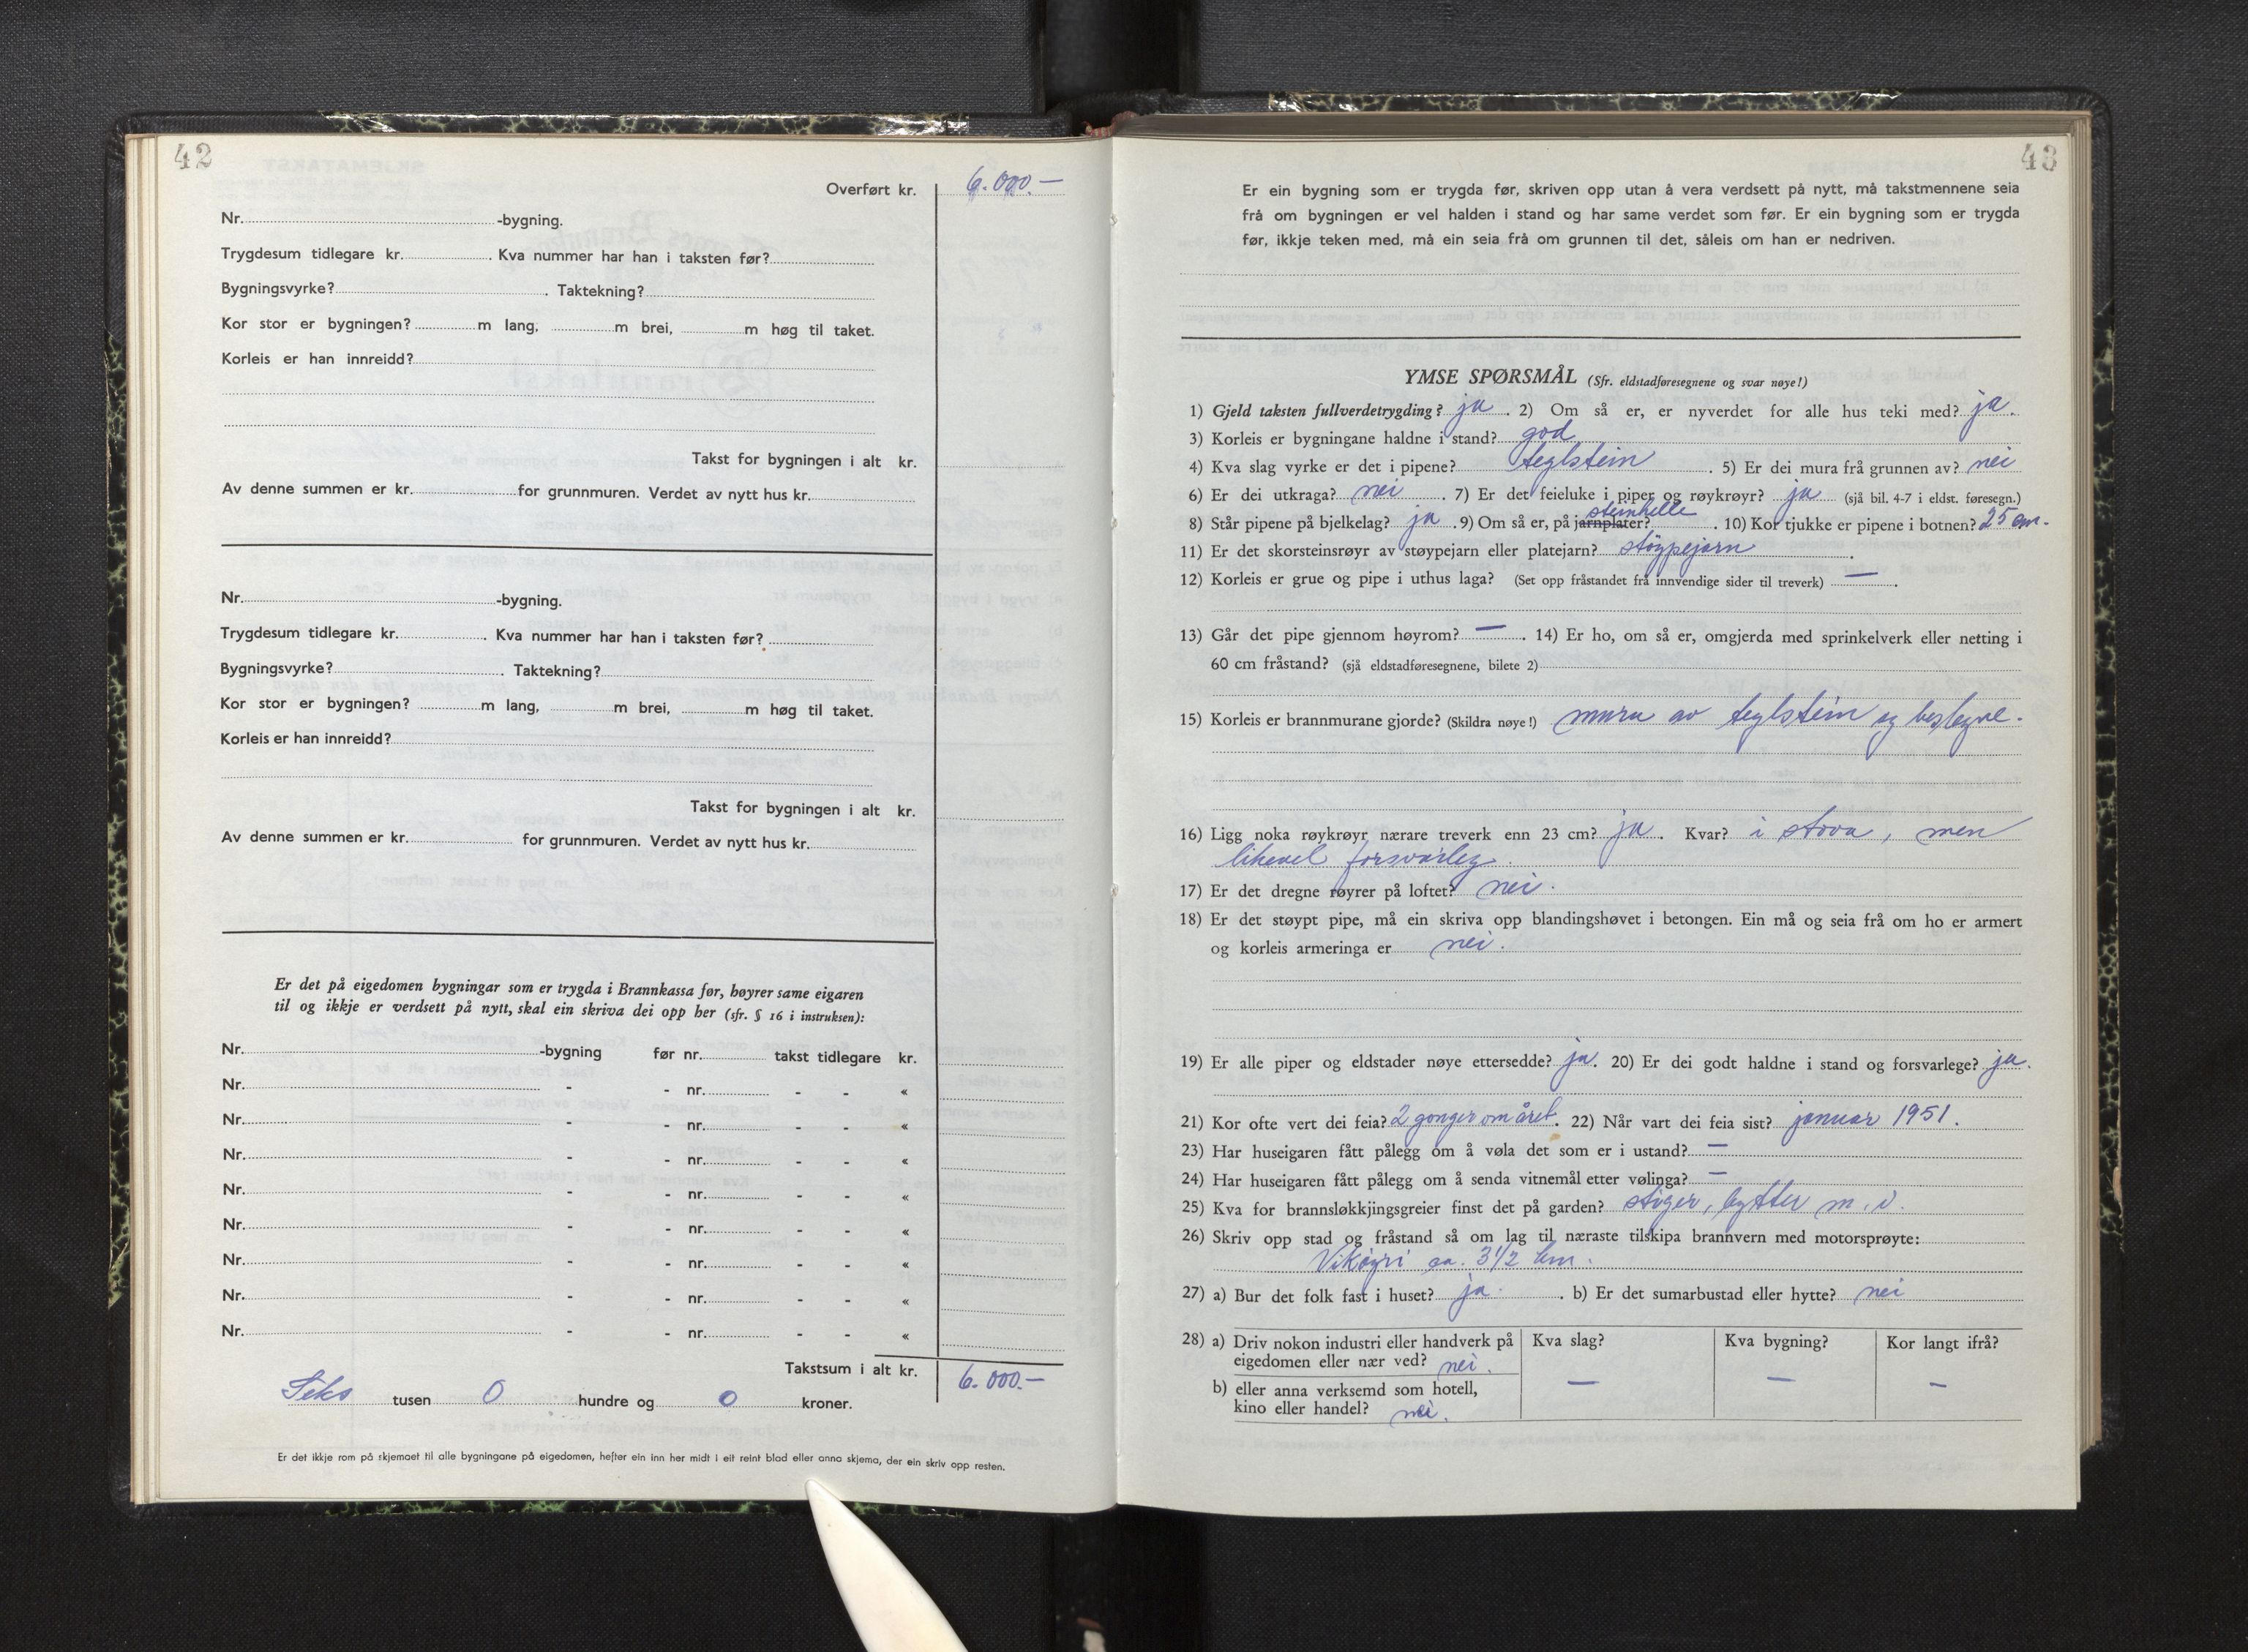 42
Overført kr. 6.000.—
Nr. -bygning.
Trygdesum tidlegare kr. . Kva nummer har han i taksten før?
Bygningsvyrke? . Taktekning?
Kor stor er bygningen? m lang, m brei, m høg til taket.
Korleis er han innreidd?
Takst for bygningen i alt kr.
Av denne summen er kr. for grunnmuren. Verdet av nytt hus kr.
Nr. -bygning.
Trygdesum tidlegare kr. . Kva nummer har han i taksten før?
Bygningsvyrke? . Taktekning?
Kor stor er bygningen? m lang, m brei, m høg til taket.
Korleis er han innreidd?
Takst for bygningen i alt kr.
Av denne summen er kr. for grunnmuren. Verdet av nytt hus kr.
Er det på eigedomen bygningar som er trygda i Brannkassa før, høyrer same eigaren
til og ikkje er verdsett på nytt, skal ein skriva dei opp her (sfr. § 16 i instruksen):
Nr. -bygning før nr. takst tidlegare kr.
Nr. - - nr. - - «
Nr. - - nr. - - «
Nr. - - nr. - - «
Nr. - - nr. - - «
Nr. - - nr. - - «
Nr. - - nr. - - «
Nr. - - nr. - - «
Nr. - - nr. - - «
Takstsum i alt kr. 6.000.—
Seks tusen 0 hundre og 0 kroner.
Er det ikkje rom på skjemaet til alle bygningane på eigedomen, hefter ein inn her midt i eit reint blad eller anna skjema, der ein skriv opp resten.
43
Er ein bygning som er trygda før, skriven opp utan å vera verdsett på nytt, må takstmennene seia
frå om bygningen er vel halden i stand og har same verdet som før. Er ein bygning som er trygda
før, ikkje teken med, må ein seia frå om grunnen til det, såleis om han er nedriven.
YMSE SPØRSMÅL (Sfr. eldstadføresegnene og svar nøye!)
1) Gjeld taksten fullverdetrygding? ja . 2) Om så er, er nyverdet for alle hus teki med? ja.
3) Korleis er bygningane haldne i stand? god
4) Kva slag vyrke er det i pipene? teglstein . 5) Er dei mura frå grunnen av? nei
6) Er dei utkraga? nei . 7) Er det feieluke i piper og røykrøyr? ja (sjå bil. 4-7 i eldst. føresegn.)
steinhelle
8) Står pipene på bjelkelag? ja . 9) Om så er, på jarnplater? . 10) Kor tjukke er pipene i botnen? 25 cm.
11) Er det skorsteinsrøyr av støypejarn eller platejarn? støypejarn .
12) Korleis er grue og pipe i uthus laga? (Set opp fråstandet frå innvendige sider til treverk) — .
13) Går det pipe gjennom høyrom? — . 14) Er ho, om så er, omgjerda med sprinkelverk eller netting i
60 cm fråstand? (sjå eldstadføresegnene, bilete 2)
15) Korleis er brannmurane gjorde? (Skildra nøye!) mura av teglstein og beslegne.
16) Ligg noka røykrøyr nærare treverk enn 23 cm? ja . Kvar? i stova, men
likevel forsvarleg.
17) Er det dregne røyrer på loftet? nei.
18) Er det støypt pipe, må ein skriva opp blandingshøvet i betongen. Ein må og seia frå om ho er armert
og korleis armeringa er nei.
19) Er alle piper og eldstader nøye ettersedde? ja. 20) Er dei godt haldne i stand og forsvarlege? ja.
21) Kor ofte vert dei feia? 2 gonger om året. 22) Når vart dei feia sist? januar 1951.
23) Har huseigaren fått pålegg om å vøla det som er i ustand? —
24) Har huseigaren fått pålegg om å senda vitnemål etter vølinga? —
25) Kva for brannsløkkjingsgreier finst det på garden? stiger, bytter m.v.
26) Skriv opp stad og fråstand så om lag til næraste tilskipa brannvern med motorsprøyte:
Vikøyri ca. 3 1/2 km.
27) a) Bur det folk fast i huset? ja. . b) Er det sumarbustad eller hytte? nei
28) a) Driv nokon industri eller handverk på Kva slag? Kva bygning? Kor langt ifrå?
eigedomen eller nær ved? nei.
b) eller anna verksemd som hotell, — — —
kino eller handel? nei.